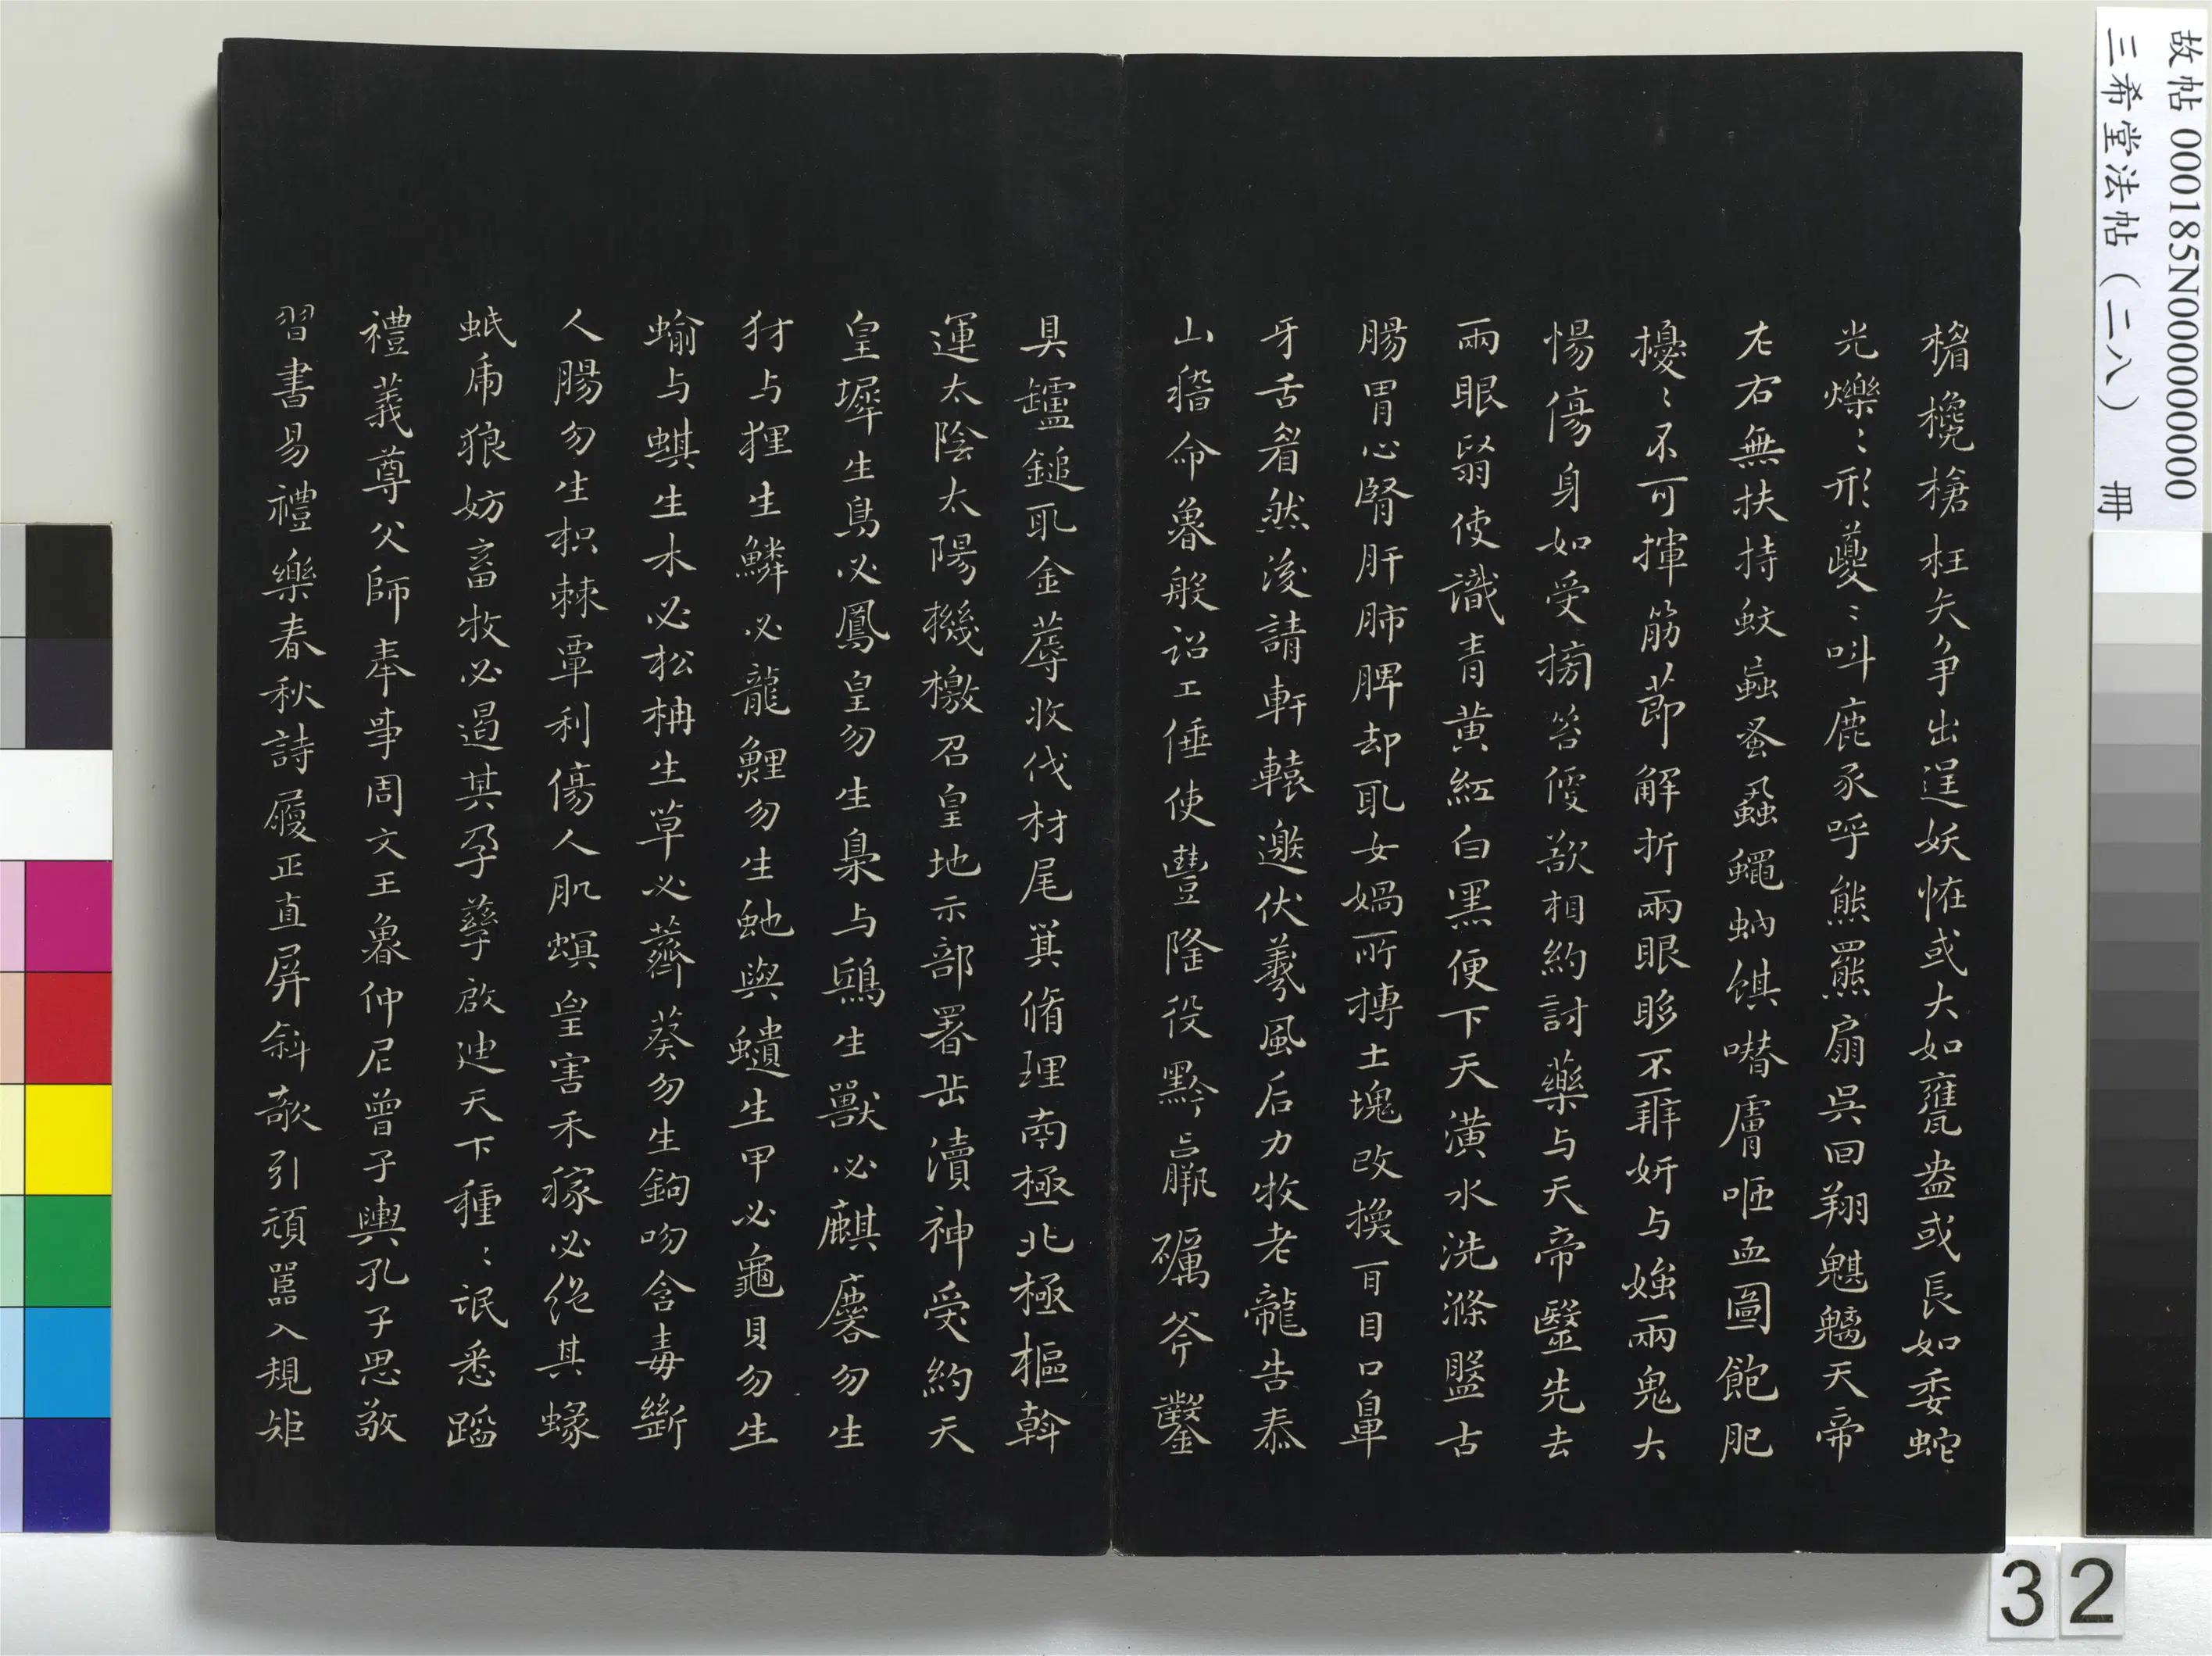 榰欃槍枉矢争出逞妖恠或大如甕盎或長如委蛇
光爍〻形蘷〻叫鹿豕呼熊羆扇吳回翔魃魑天帝
左右無扶持蚊蝱蚤蝨蠅蚋蜞噆膚咂血圖飽肥
擾〻不可揮筋莭解折兩眼眵不辨妍与媸兩鬼大
惕傷身如受搒笞便欲相約討藥与天帝毉先去
兩眼翳使識青黄紅白黑便下天潢水洗滌盤古
腸胃心腎肝肺脾却取女媧所摶土塊改換耳目口鼻
牙舌眉然後請軒轅邀伏羲風后力牧老龍吉泰
山稽命魯般詔工倕使豐隆役黔嬴礪斧鑿
具鑪鎚取金蓐收伐材尾箕脩理南極北極樞斡
運太陰太陽機檄召皇地示部署岳瀆神受約天
皇墀生鳥必鳳皇勿生梟与鴟生獸必麒麐勿生
犲与狸生鱗必龍鯉勿生虵與蟥生甲必龜貝勿生
蝓与蜞生木必松柟生草必薺葵勿生鉤吻含毒斷
人腸勿生枳棘覃利傷人肌螟皇害禾稼必绝其蝝
蚳虎狼妨畜牧必遏其孕孳啟迪天下蠢〻氓悉蹈
禮義尊父師奉事周文王魯仲尼曾子輿孔子思敬
習書易禮樂春秋詩履正直屏斜欹引頑嚚入規矩
故帖 000185N000000000
三希堂法帖（二八） 冊
32